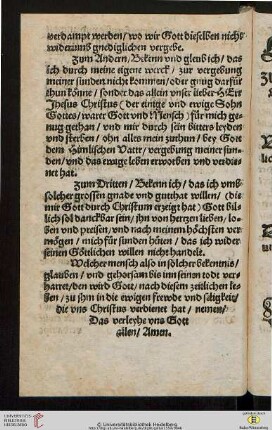 verdampt werden/ wo wir Gott dieselben nicht
widerumb gnediglichen vergebe.
Zum Andern/ Bekenn vnd gleub ich/ das
ich durch meine eigene werck/ zur vergebung
meiner sunden nicht kommen/ oder gnug darfür
thun könne/ sonder das allein vnser lieber HErr
Jhesus Christus (der einige vnd ewige Sohn
Gottes/ warer Gott vnd Mensch) für mich ge-
nug gethan/ vnd mir durch sein bitters leyden
vnd sterben/ ohn alles mein zuthun/ bey Gott
dem Himlischen Vatter/ vergebung meiner sun-
den/ vnd das ewige leben erworben vnd verdie-
net hat.
Zum Dritten/ Bekenn ich/ das ich vmb
solcher grossen gnade vnd gutthat willen/ (die
mir Gott durch Christum erzeigt hat) Gott bil-
lich sol danckbar sein/ jhn von hertzen lieben/ lo-
ben vnd preisen/ vnd nach meinem höchsten ver-
mögen/ mich für sunden hüten/ das ich wider
seinen Göttlichen willen nicht handele.
Welcher mensch also in solcher bekentnis/
glauben/ vnd gehorsam bis inn seinen todt ver-
harret/ den wird Gott/ nach diesem zeitlichen le-
ben/ zu jhm in die ewigen frewde vnd seligkeit/
die vns Christus verdienet hat/ nemen/
Das verleyhe vns Gott
allen/ Amen.
UNIVERSITÄTS-
BIBLIOTHEK
HEIDELBERG
© Universitätsbibliothek Heidelberg